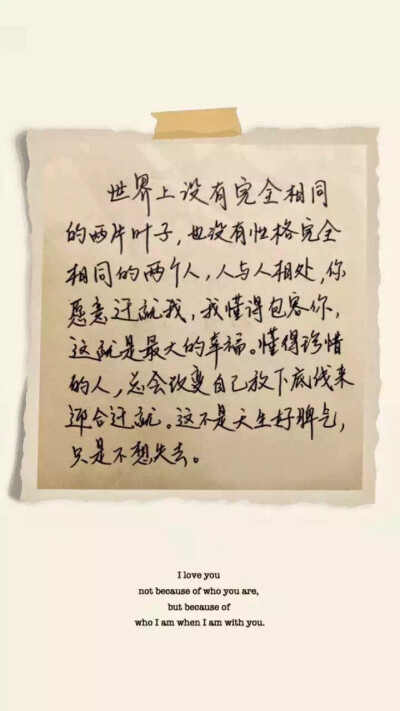 世界上没有完全相同
的两片叶子，也没有性格完全
相同的两个人，人与人相处，你
愿意迁就我，我懂得包容你，
这就是最大的幸福。懂得珍惜
的人，总会改变自己放下底线来
迎合迁就。这不是天生好脾气，
只是不想失去。
I love you
not because of who you are,
but because of
who I am when I am with you.